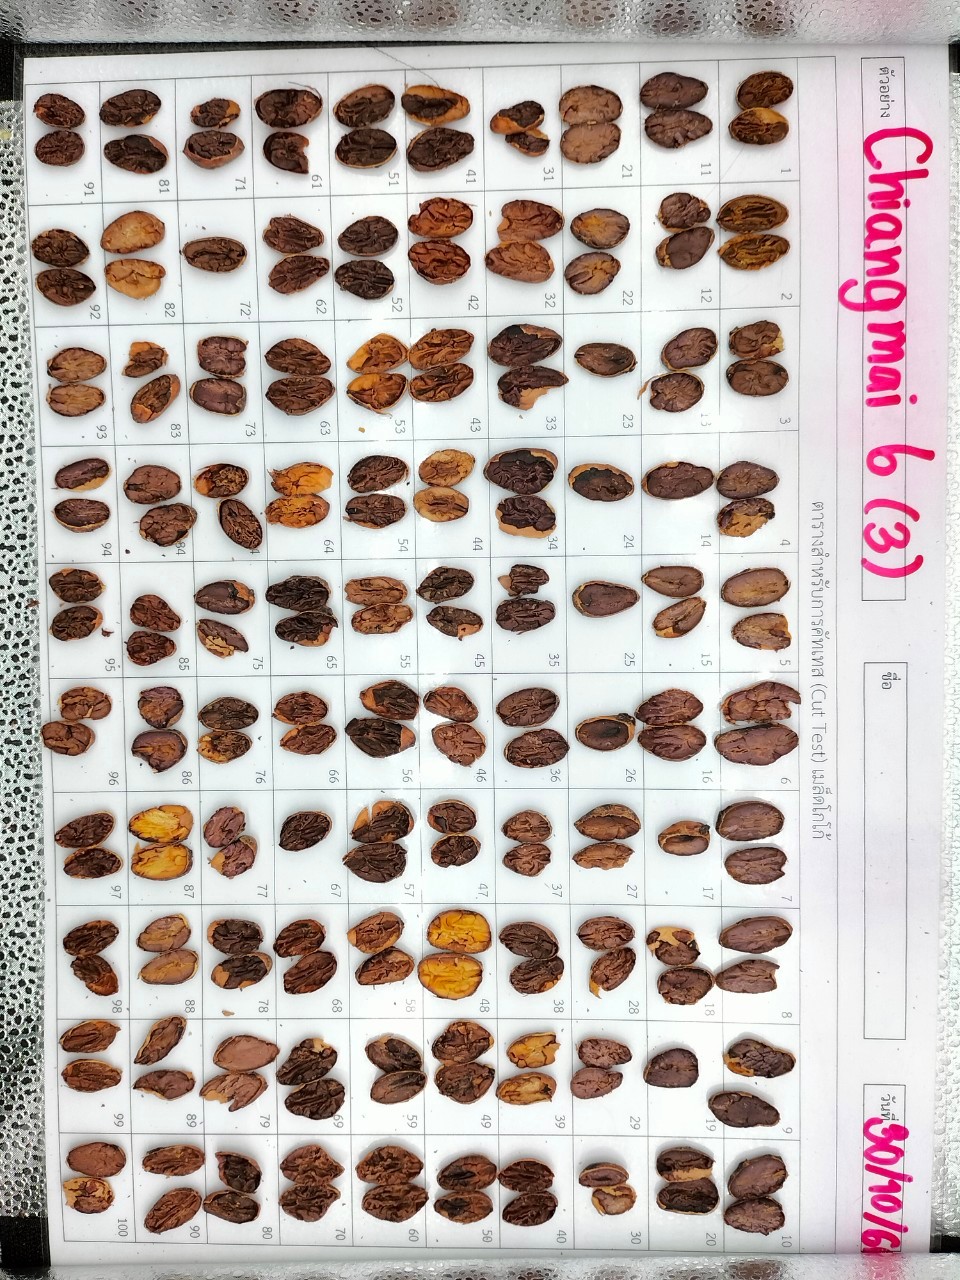 ตัวอย่าง Chiangmai 6 (3) ชื่อ วันที่ 30/10/6
ตารางสำหรับการคัทเทส (Cut Test) เมล็ดโกโก้
1 2 3 4 5 6 7 8 9 10
11 12 13 14 15 16 17 18 19 20
21 22 23 24 25 26 27 28 29 30
31 32 33 34 35 36 37 38 39 40
41 42 43 44 45 46 47 48 49 50
51 52 53 54 55 56 57 58 59 60
61 62 63 64 65 66 67 68 69 70
71 72 73 4 75 76 77 78 79 80
81 82 83 84 85 86 87 88 89 90
91 92 93 94 95 96 97 98 99 100